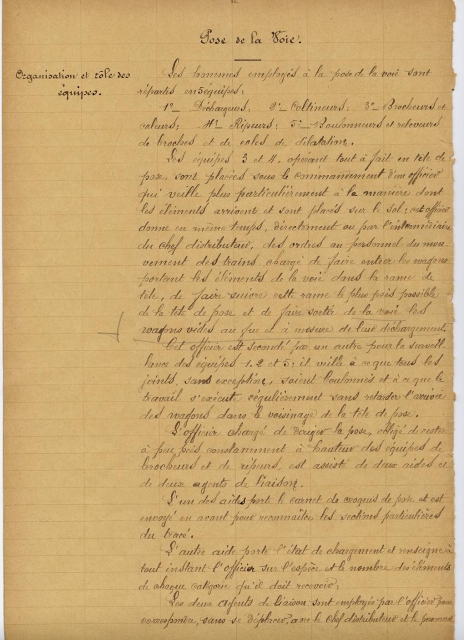 Pose de la Voie.
Organisation et rôle des
équipes.
Les hommes employés à la pose de la voie sont
répartis en 5 équipes:
1º_ Débarqueurs; 2º_ Coltineurs; 3º_ Brocheurs et
caleurs; 4º_ Ripeurs; 5º_ Boulonneurs et releveurs
de broches et de cales de dilatation.
Les équipes 3 et 4, opérant tout à fait en tête de
pose, sont placées sous le commandement d'un officier
qui veille plus particulièrement à la manière dont
les éléments arrivent et sont placés sur le sol; cet officier
donne en même temps, directement ou par l'intermédiaire
du chef distributeur, des ordres au personnel du mou-
vement des trains chargé de faire entrer les wagons
portant les éléments de la voie dans la rame de
tête, de faire suivre cette rame le plus près possible
de la tête de pose et de faire sortir de la voie les
wagons vides au fur et à mesure de leur déchargement.
Cet officier est secondé par un autre pour la surveil-
lance des équipes 1, 2 et 5; il veille à ce que tous les
joints, sans exception, soient boulonnés et à ce que le
travail s'exécute régulièrement sans retarder l'arrivée
des wagons dans le voisinage de la tête de pose.
L'officier chargé de diriger la pose, obligé de rester
à peu près constamment à hauteur des équipes de
brocheurs et de ripeurs, est assisté de deux aides et
de deux agents de liaison.
L'un des aides porte le carnet de croquis de pose et est
envoyé en avant pour reconnaître les sections particulières
du tracé.
L'autre aide porte l'état de chargement et renseigne à
tout instant l'officier sur l'espèce et le nombre des éléments
de chaque catégorie qu'il doit recevoir.
Les deux agents de liaison sont employés par l'officier pour
correspondre, sans se déplacer, avec le chef distributeur et le